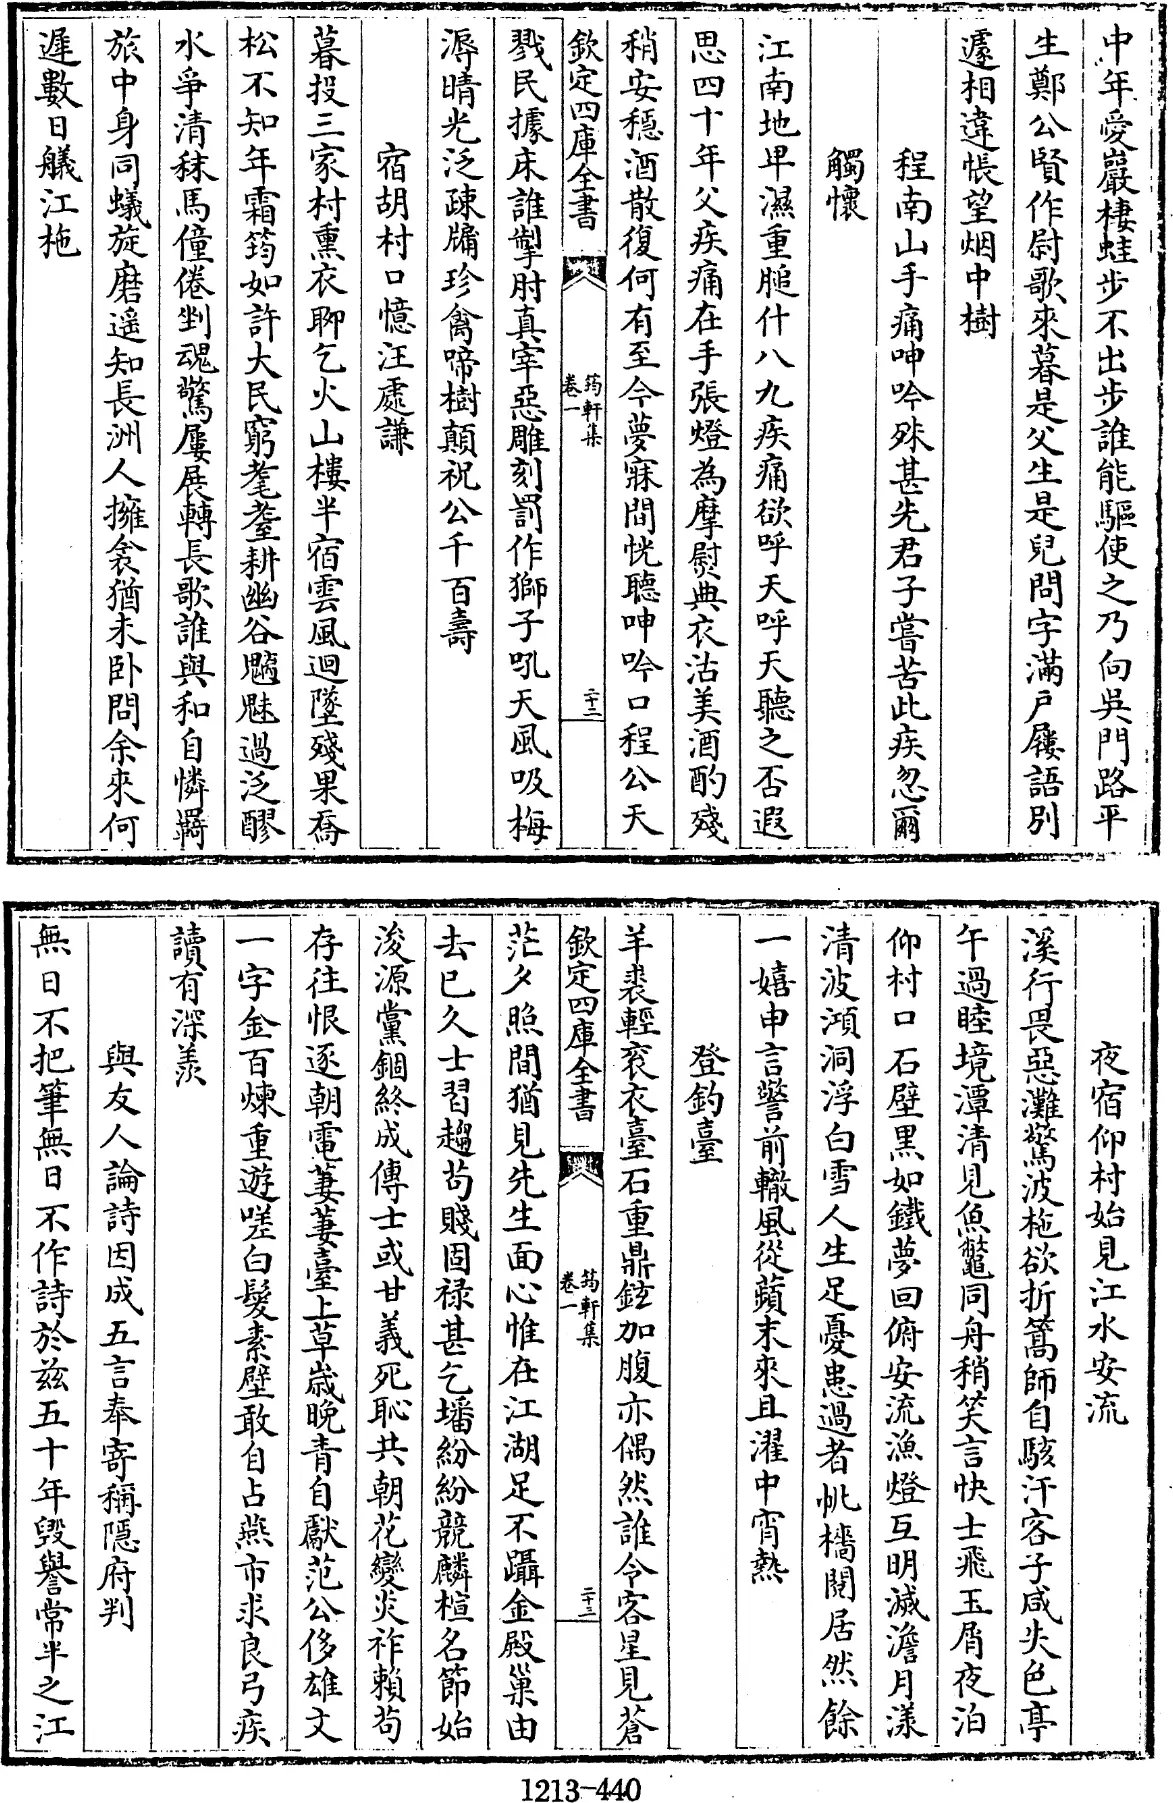 中年愛巖棲蛙步不出步誰能驅使之乃向吳門路平
生鄭公賢作尉歌來暮是父生是兒問字滿戶屨語別
遽相違悵望烟中樹
程南山手痛呻吟殊甚先君子嘗苦此疾忽爾
觸懷
江南地卑濕重膇什八九疾痛欲呼天呼天聽之否遐
思四十年父疾痛在手張燈為摩熨典衣沽美酒酌殘
稍安穩酒散復何有至今夢寐間恍聽呻吟口程公天
欽定四庫全書
筠軒集
卷一
二十二
戮民據床誰掣肘真宰惡雕刻罰作獅子吼天風吸梅
溽晴光泛疎牖珍禽啼樹顛祝公千百壽
宿胡村口憶汪處謙
暮投三家村熏衣聊乞火山樓半宿雲風迴墜殘果喬
松不知年霜筠如許大民窮耄耋耕幽谷魑魅過泛醪
水爭清秣馬僮倦剉魂驚屢展轉長歌誰與和自憐羇
旅中身同蟻旋磨遥知長洲人擁衾猶未卧問余來何
遲數日艤江柂
夜宿仰村始見江水安流
溪行畏惡灘驚波柂欲折篙師自駭汗客子咸失色亭
午過睦境潭清見魚鼈同舟稍笑言快士飛玉屑夜泊
仰村口石壁黑如鐵夢回俯安流漁燈互明滅澹月漾
清波澒洞浮白雪人生足憂患過者帆檣閱居然餘
一嬉申言警前轍風從蘋末來且濯中宵熱
登釣臺
羊裘輕衮衣臺石重鼎鉉加腹亦偶然誰令客星見蒼
欽定四庫全書
筠軒集
卷一
二十三
茫夕照間猶見先生面心惟在江湖足不躡金殿巢由
去已久士習趨苟賤固祿甚乞墦紛紛競麟楦名節始
浚源黨錮終成傳士或甘義死恥共朝花變炎祚賴苟
存往恨逐朝電萋萋臺上草歲晚青自獻范公侈雄文
一字金百煉重遊嗟白髮素壁敢自占燕市求良弓疾
讀有深羨
與友人論詩因成五言奉寄稱隱府判
無日不把筆無日不作詩於兹五十年毀譽常半之江
1213-440